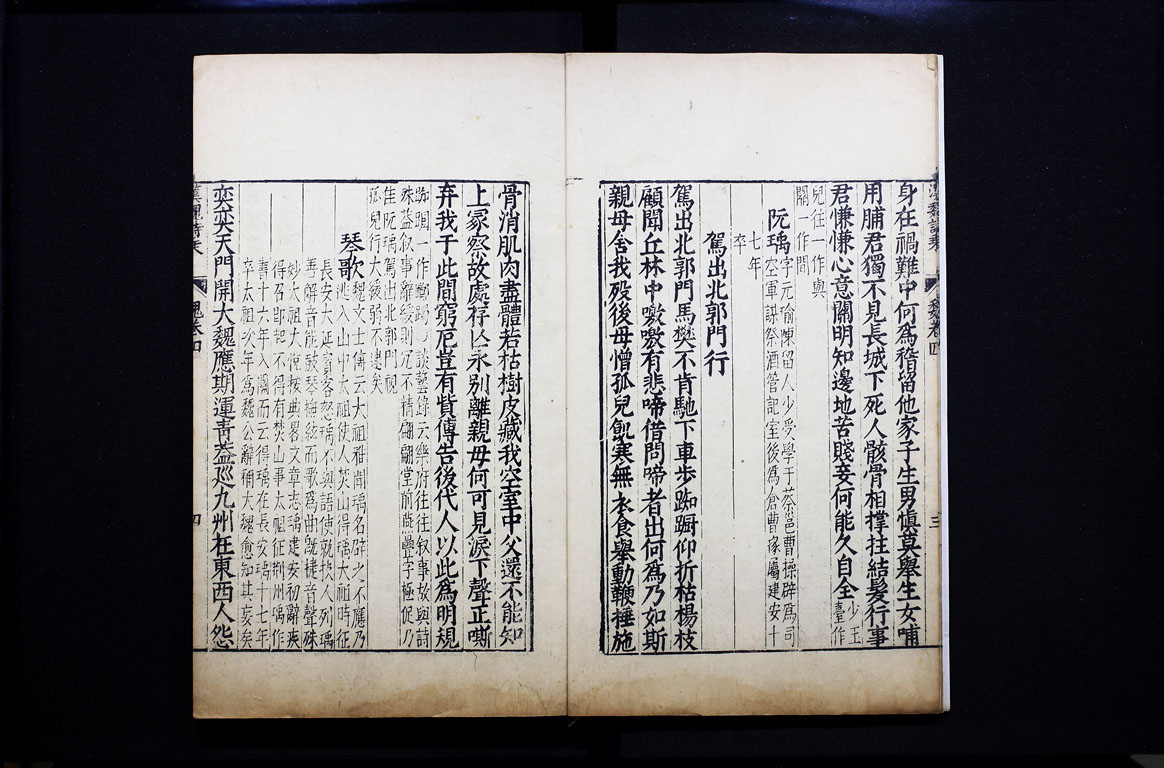 漢魏詩乘 魏卷四 三
身在禍難中何爲稽留他家子生男愼莫舉生女哺
用脯君獨不見長城下死人骸骨相撐拄結髮行事
君慊慊心意關明知邊地苦賤妾何能久自全少玉臺作
兒往一作與
關一作間
阮瑀字元瑜陳留人少受學于蔡邕曹操辟爲司
空軍謀祭酒管記室後爲倉曹掾屬建安十
七年
卒
駕出北郭門行
駕出北郭門馬樊不肯馳下車步踟躕仰折枯楊枝
顧聞丘林中噭噭有悲啼借問啼者出何爲乃如斯
親母舍我歿後母憎孤兒飢寒無衣食舉動鞭捶施
骨消肌肉盡體若枯樹皮藏我空室中父還不能知
上冢察故處存亡永別離親母何可見淚下聲正嘶
弃我于此間窮厄豈有貲傳告後代人以此爲明規
談藝錄云樂府往往叙事故與詩
殊葢叙事辭緩則冗不精翩翩堂前燕疊字極促乃
佳阮瑀駕出北郭門視
孤兒行大緩弱不逮矣
琴歌魏文士傳云太祖雅聞瑀名辟之不應乃
逃入山中太祖使人焚山得瑀太祖時征
長安大延賓客怒瑀不與語使就技人列瑀
善解音能鼓琴撫絃而歌爲曲旣捷音聲殊
妙太祖大悅按典畧文章志瑀建安初辭疾
得召卽起不得有焚山事太祖征荆州瑀作
書十六年入關而云得瑀在長安瑀十七年
卒太祖次年爲魏公辭稱大魏愈知其妄矣
奕奕天門開大魏應期運靑葢巡九州在東西人怨
漢魏詩乘 魏卷四 四